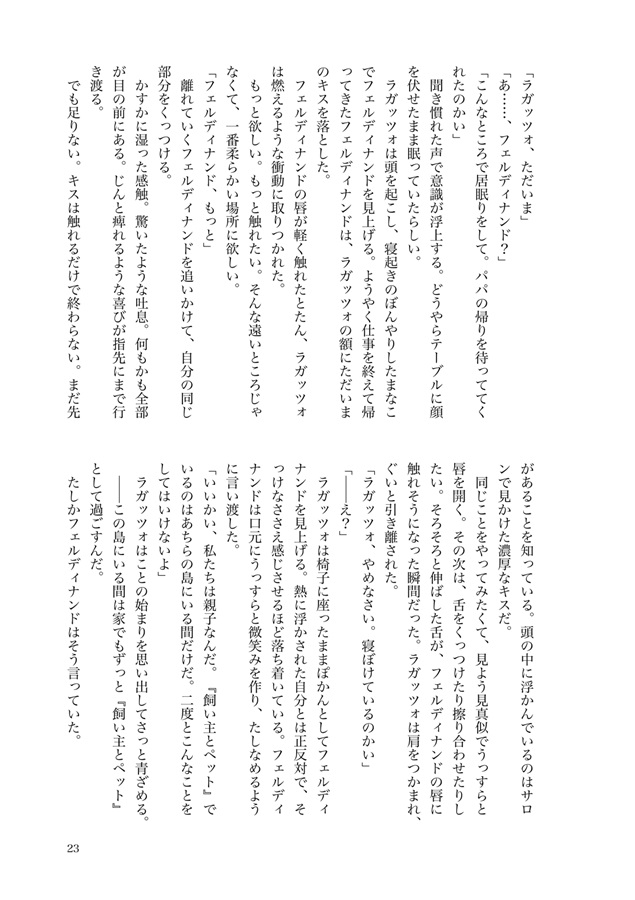 「ラガッツォ、ただいま」
「あ……、フェルディナンド？」
「こんなところで居眠りをして。パパの帰りを待っててく
れたのかい」
　聞き慣れた声で意識が浮上する。どうやらテーブルに顔
を伏せたまま眠っていたらしい。
　ラガッツォは頭を起こし、寝起きのぼんやりしたまなこ
でフェルディナンドを見上げる。ようやく仕事を終えて帰
ってきたフェルディナンドは、ラガッツォの額にただいま
のキスを落とした。
　フェルディナンドの唇が軽く触れたとたん、ラガッツォ
は燃えるような衝動に取りつかれた。
　もっと欲しい。もっと触れたい。そんな遠いところじゃ
なくて、一番柔らかい場所に欲しい。
「フェルディナンド、もっと」
　離れていくフェルディナンドを追いかけて、自分の同じ
部分をくっつける。
　かすかに湿った感触。驚いたような吐息。何もかも全部
が目の前にある。じんと痺れるような喜びが指先にまで行
き渡る。
　でも足りない。キスは触れるだけで終わらない。まだ先
があることを知っている。頭の中に浮かんでいるのはサロ
ンで見かけた濃厚なキスだ。
　同じことをやってみたくて、見よう見真似でうっすらと
唇を開く。その次は、舌をくっつけたり擦り合わせたりし
たい。そろそろと伸ばした舌が、フェルディナンドの唇に
触れそうになった瞬間だった。ラガッツォは肩をつかまれ、
ぐいと引き離された。
「ラガッツォ、やめなさい。寝ぼけているのかい」
「――え？」
　ラガッツォは椅子に座ったままぽかんとしてフェルディ
ナンドを見上げる。熱に浮かされた自分とは正反対で、そ
っけなささえ感じさせるほど落ち着いている。フェルディ
ナンドは口元にうっすらと微笑みを作り、たしなめるよう
に言い渡した。
「いいかい、私たちは親子なんだ。『飼い主とペット』で
いるのはあちらの島にいる間だけだ。二度とこんなことを
してはいけないよ」
　ラガッツォはことの始まりを思い出してさっと青ざめる。
　――この島にいる間は家でもずっと『飼い主とペット』
として過ごすんだ。
　たしかフェルディナンドはそう言っていた。
23